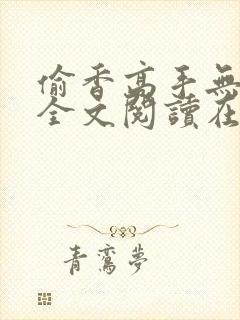 偷香高手無
全文閱讀在
青鸞夢